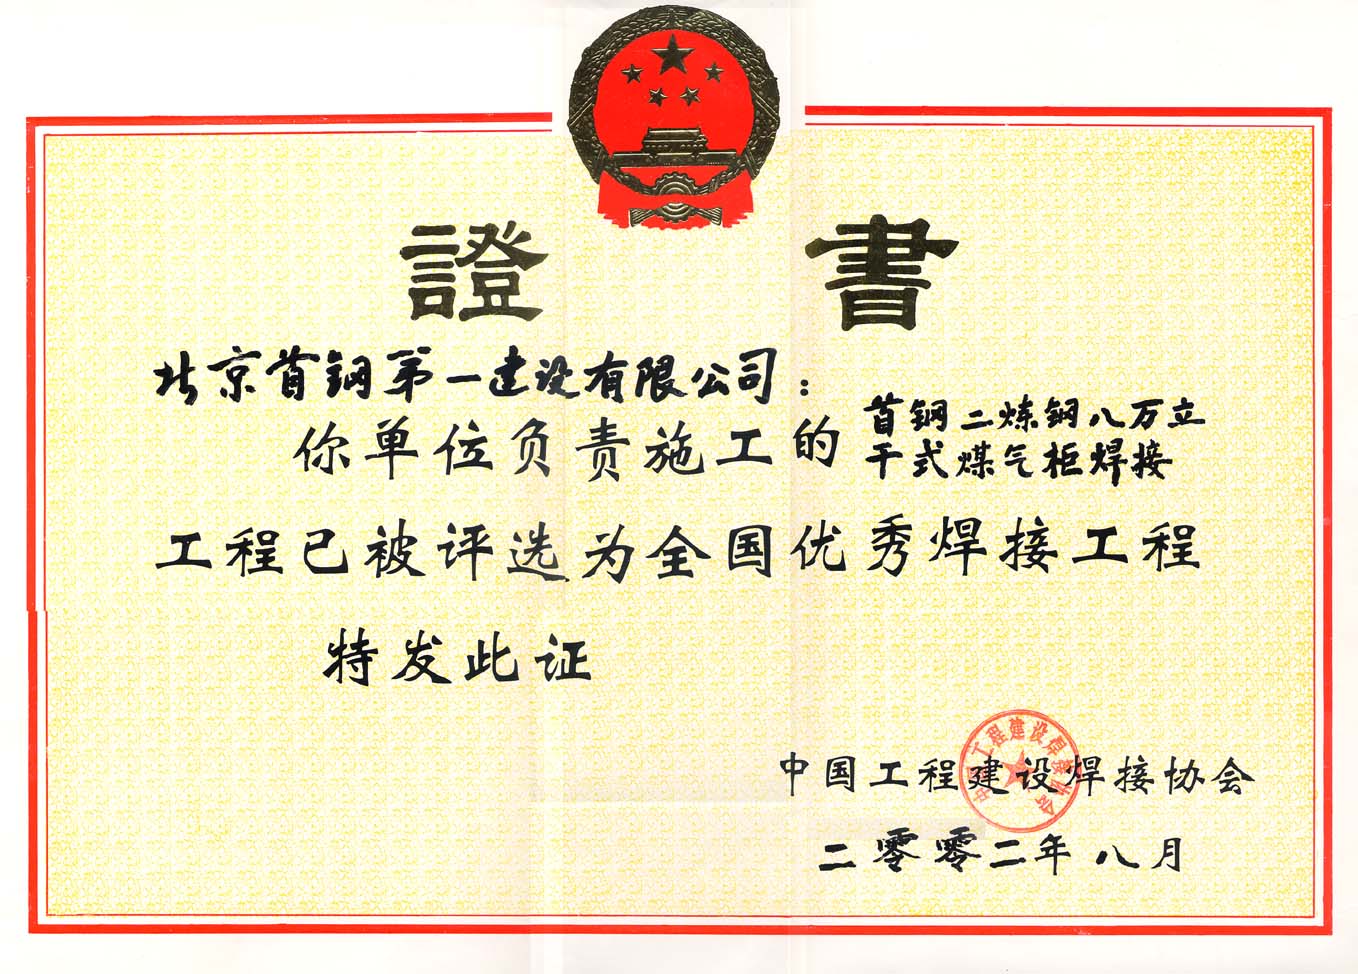 證書
北京首钢第一建设有限公司：
你单位负责施工的
首钢二炼钢八万立
干式煤气柜焊接
工程已被评选为全国优秀焊接工程
特发此证
中国工程建设焊接协会
中国工程建设焊接协会
二零零二年八月